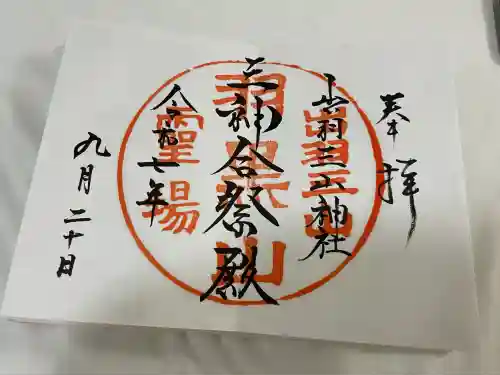 奉拝
出羽三山神社
三神合祭殿
令和七年
九月二十日
出羽三山
羽黒山
霊場